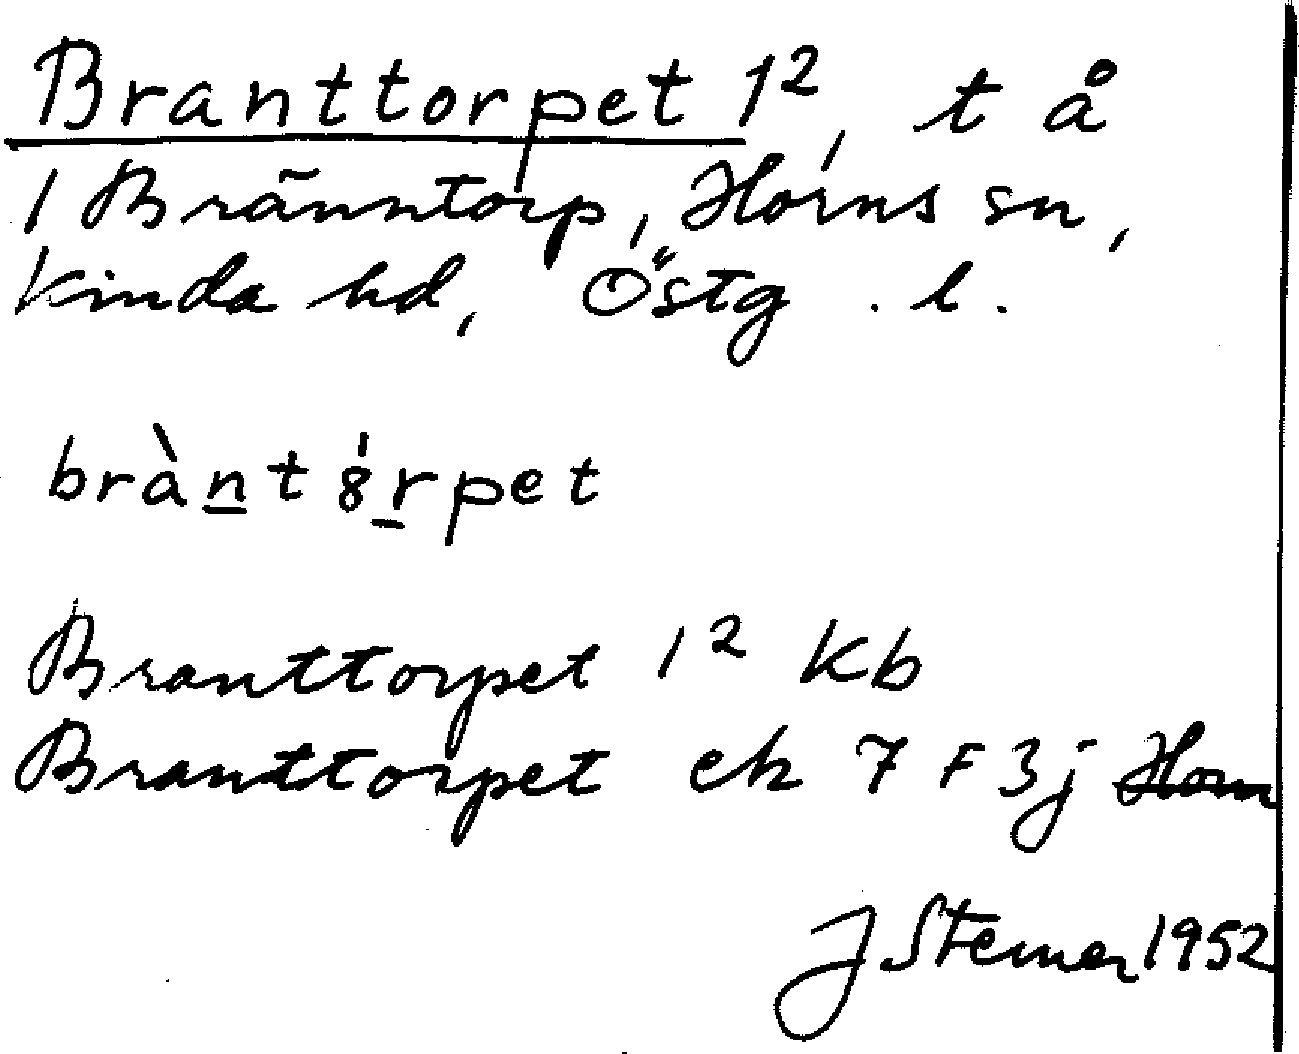 Branttorpet 1², t å
1 Bränntorp, Horns sn,
Kinda hd, Östg. l.
brànt8́rpet
Branttorpet 1² Kb
Branttorpet ek 7 F 3j Horn
J Sterner 1952